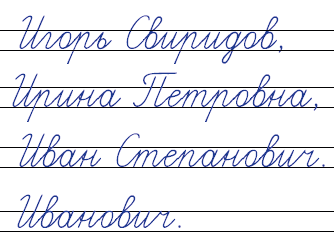 Игорь Свиридов,
Ирина Петровна,
Иван Степанович.
Иванович.